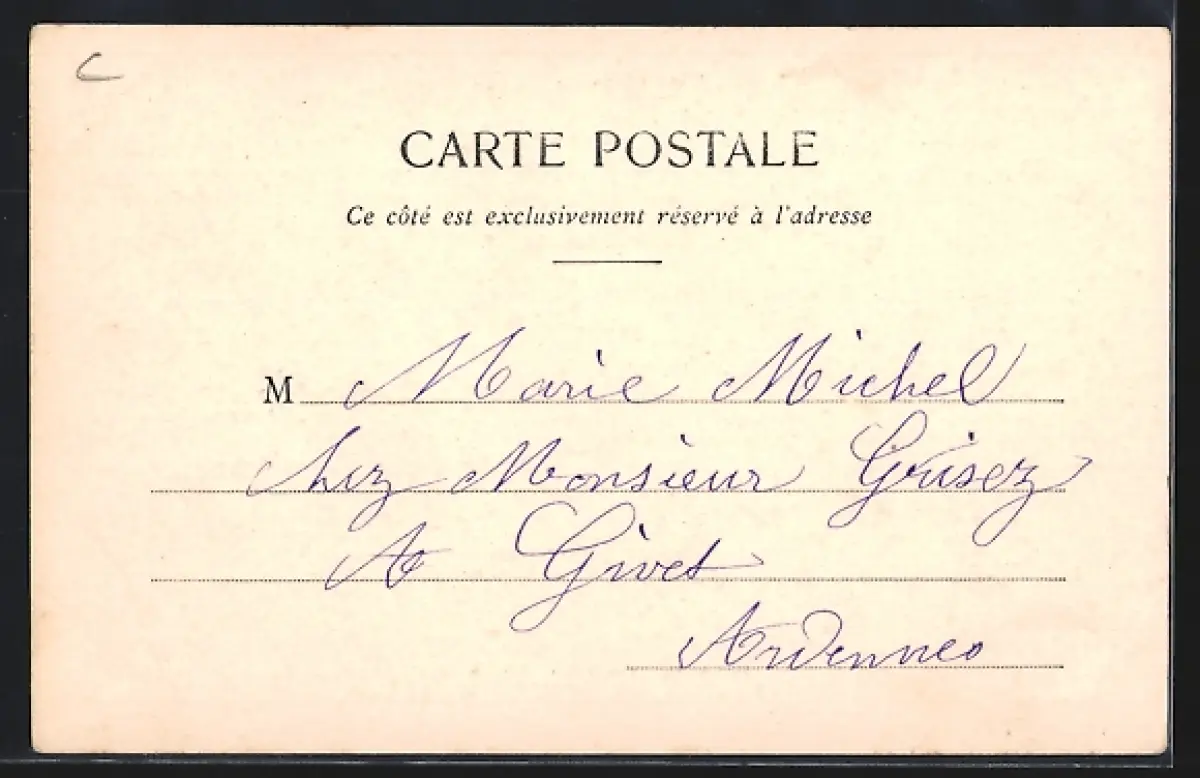 C
CARTE POSTALE
Ce côté est exclusivement réservé à l'adresse
M Marie Michel
chez Monsieur Grisez
A Givet
Ardennes